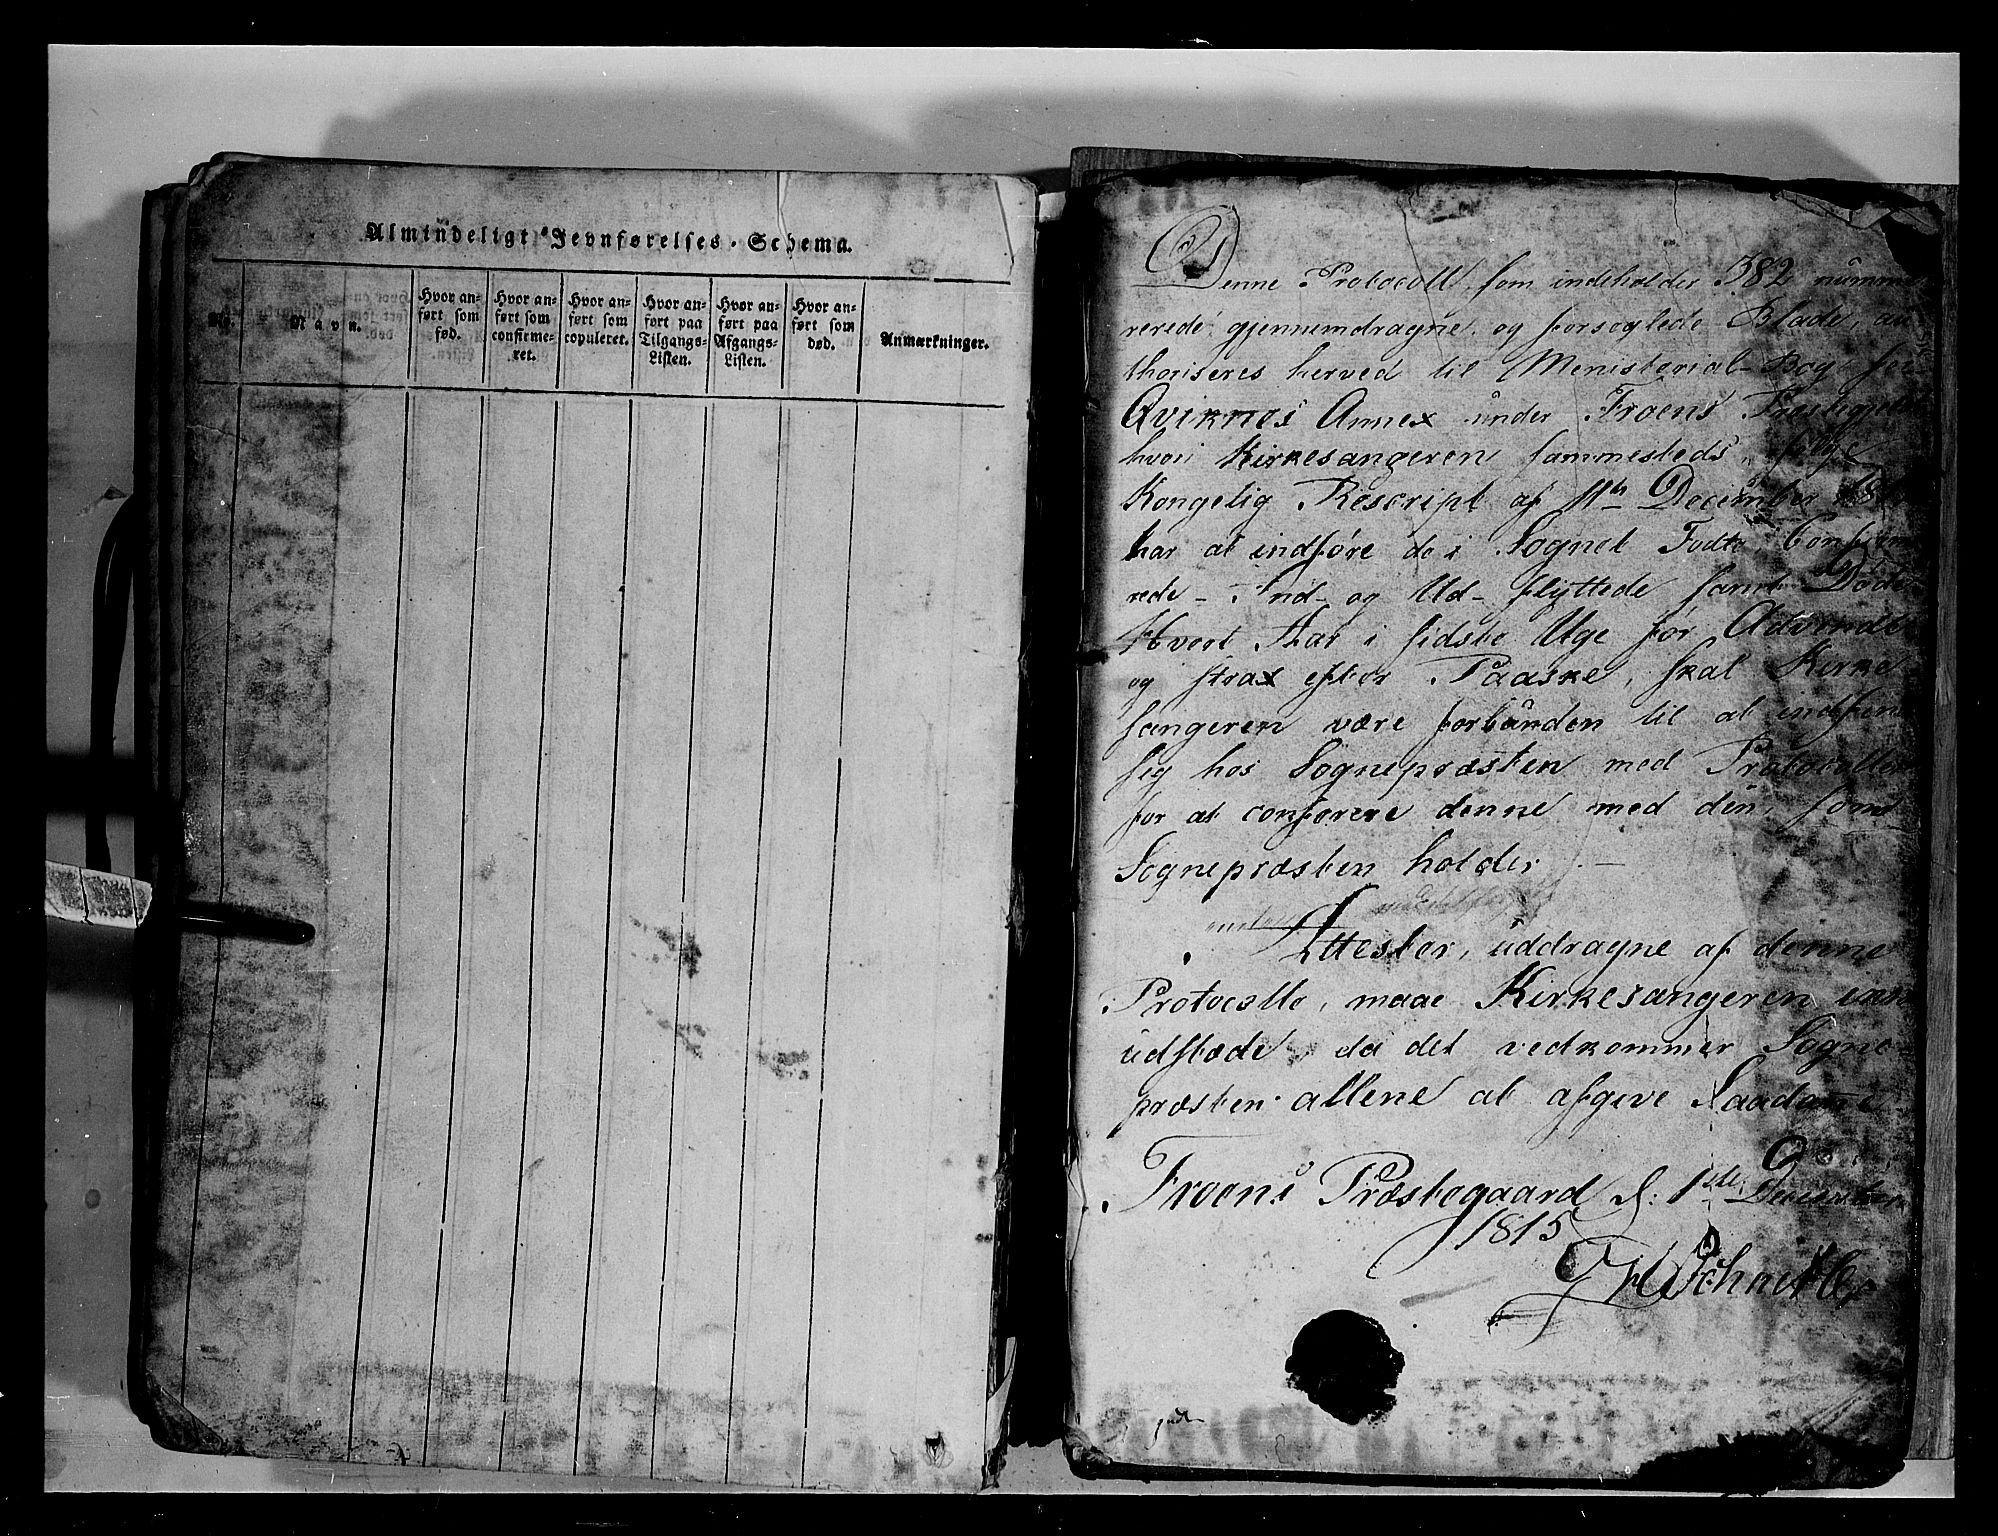 Almindeligt Jevnførelses-Schema.
No.
Navn.
Hvor an-
ført som
fød.
Hvor an-
ført som
confirme-
ret.
Hvor an-
ført som
copuleret.
Hvor an-
ført paa
Tilgangs-
Listen.
Hvor an-
ført paa
Afgangs-
Listen.
Hvor an-
ført som
død.
Anmærkninger.
Denne Protocoll, som indeholder 382 nummer
rerede, gjennemdragne og forseglede Blade, au
thoriseres herved til Menisterial-Bog for
Qviknes Annex under Froens Præstegjeld
hvori Kirkesangeren sammesteds, følge
Kongelig Rescript af 11te December
har at indføre de i Sognet Fødte, Confirme
rede - Ind- og Ud- flyttede samt Døde
Hvert Aar i sidste Uge før Advendt
og strax efter Paaske, skal Kirke
sangeren være forbunden til at indfinde
sig hos Sognepræsten med Protocollen
for at conferere denne med den, som
Sognepræsten holder -
Attester, uddragne af denne
Protocoll, maae Kirkesangeren
udstæde, da det vedkommer Sogne-
præsten allene at afgive Saadanne
Froens Præstegaard d: 1ste December
1815
Schnitler